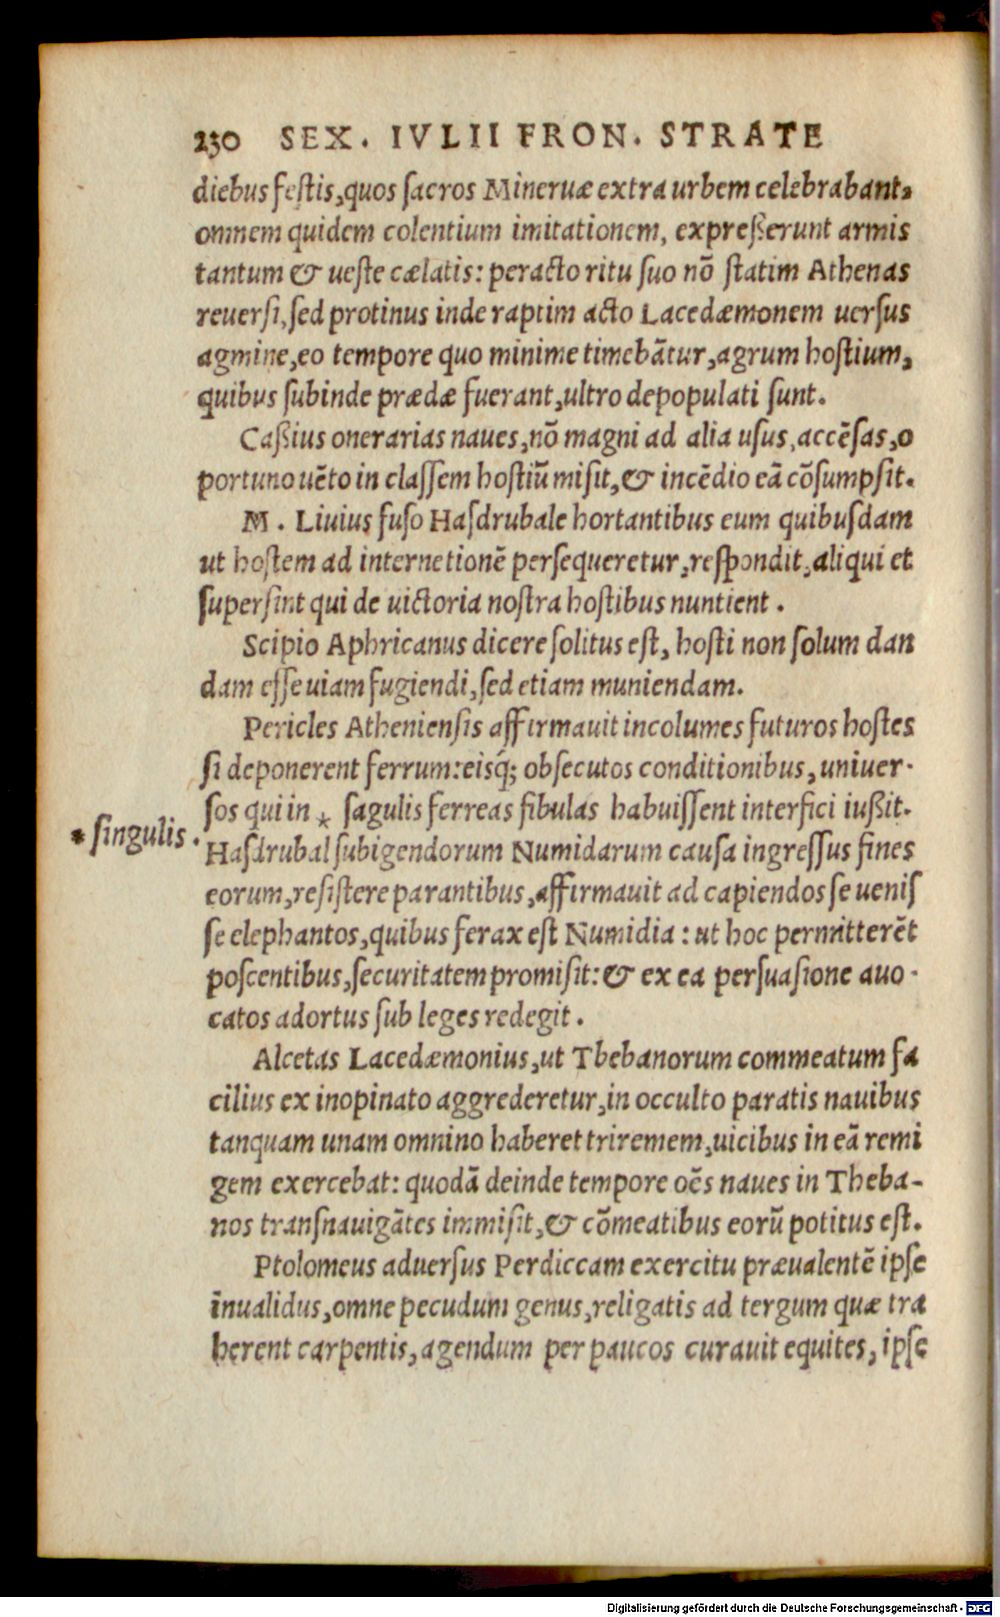 230 SEX. IVLII FRON. STRATE
diebus festis,quos sacros Mineruæ extra urbem celebrabant,
omnem quidem colentium imitationem, expreßerunt armis
tantum & ueste cælatis: peracto ritu suo nõ statim Athenas
reuersi,sed protinus inde raptim acto Lacedæmonem uersus
agmine,eo tempore quo minime timebãtur,agrum hostium,
quibus subinde prædæ fuerant,ultro depopulati sunt.
Caßius onerarias naues,nõ magni ad alia usus,accẽsas,o
portuno uẽto in classem hostiũ misit,& incẽdio eã cõsumpsit.
M. Liuius fuso Hasdrubale hortantibus eum quibusdam
ut hostem ad internetionẽ persequeretur,respondit,aliqui et
supersint qui de uictoria nostra hostibus nuntient.
Scipio Aphricanus dicere solitus est, hosti non solum dan
dam esse uiam fugiendi,sed etiam muniendam.
Pericles Atheniensis affirmauit incolumes futuros hostes
si deponerent ferrum:eisq́; obsecutos conditionibus, uniuer-
sos qui in * sagulis ferreas fibulas habuissent interfici iußit.
* singulis.
Hasdrubal subigendorum Numidarum causa ingressus fines
eorum,resistere parantibus,affirmauit ad capiendos se uenis
se elephantos,quibus ferax est Numidia: ut hoc permitterẽt
poscentibus,securitatem promisit:& ex ea persuasione auo-
catos adortus sub leges redegit.
Alcetas Lacedæmonius,ut Thebanorum commeatum fa
cilius ex inopinato aggrederetur,in occulto paratis nauibus
tanquam unam omnino haberet triremem,uicibus in eã remi
gem exercebat: quodã deinde tempore oẽs naues in Theba-
nos transnauigãtes immisit,& cõmeatibus eorũ potitus est.
Ptolomeus aduersus Perdiccam exercitu præualentẽ ipse
inualidus,omne pecudum genus,religatis ad tergum quæ tra
herent carpentis, agendum per paucos curauit equites, ipse
Digitalisierung gefördert durch die Deutsche Forschungsgemeinschaft - DFG